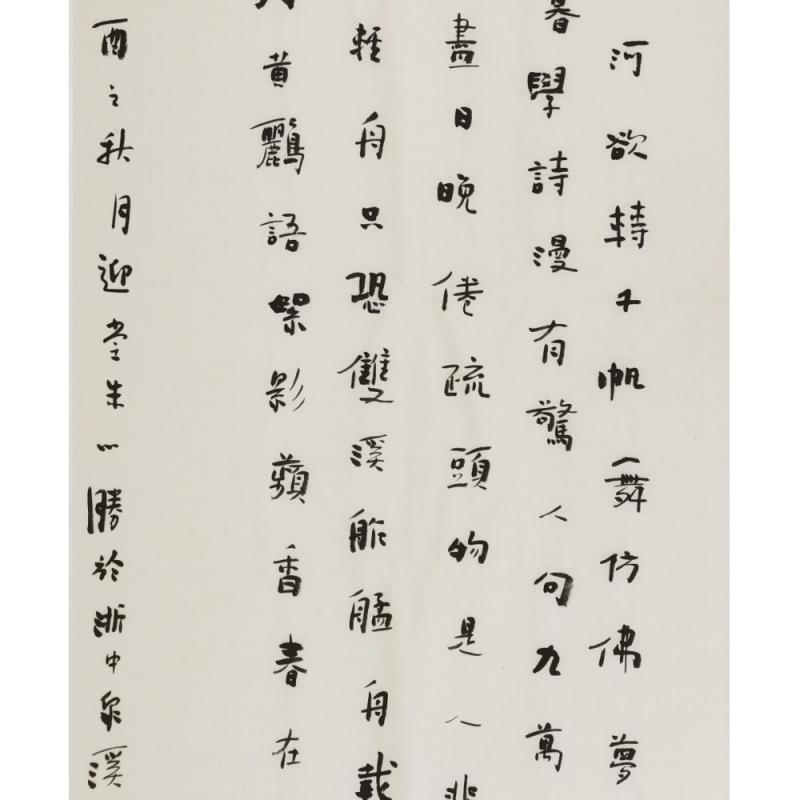 河欲轉千帆舞仿佛夢
暮學詩漫有驚人句九萬
盡日晚倦疏頭物是人非
輕舟只恐雙溪舴艋舟載
黃鸝語絮影蘋香春在
酉之秋月迎堂朱心勝於浙中泉溪